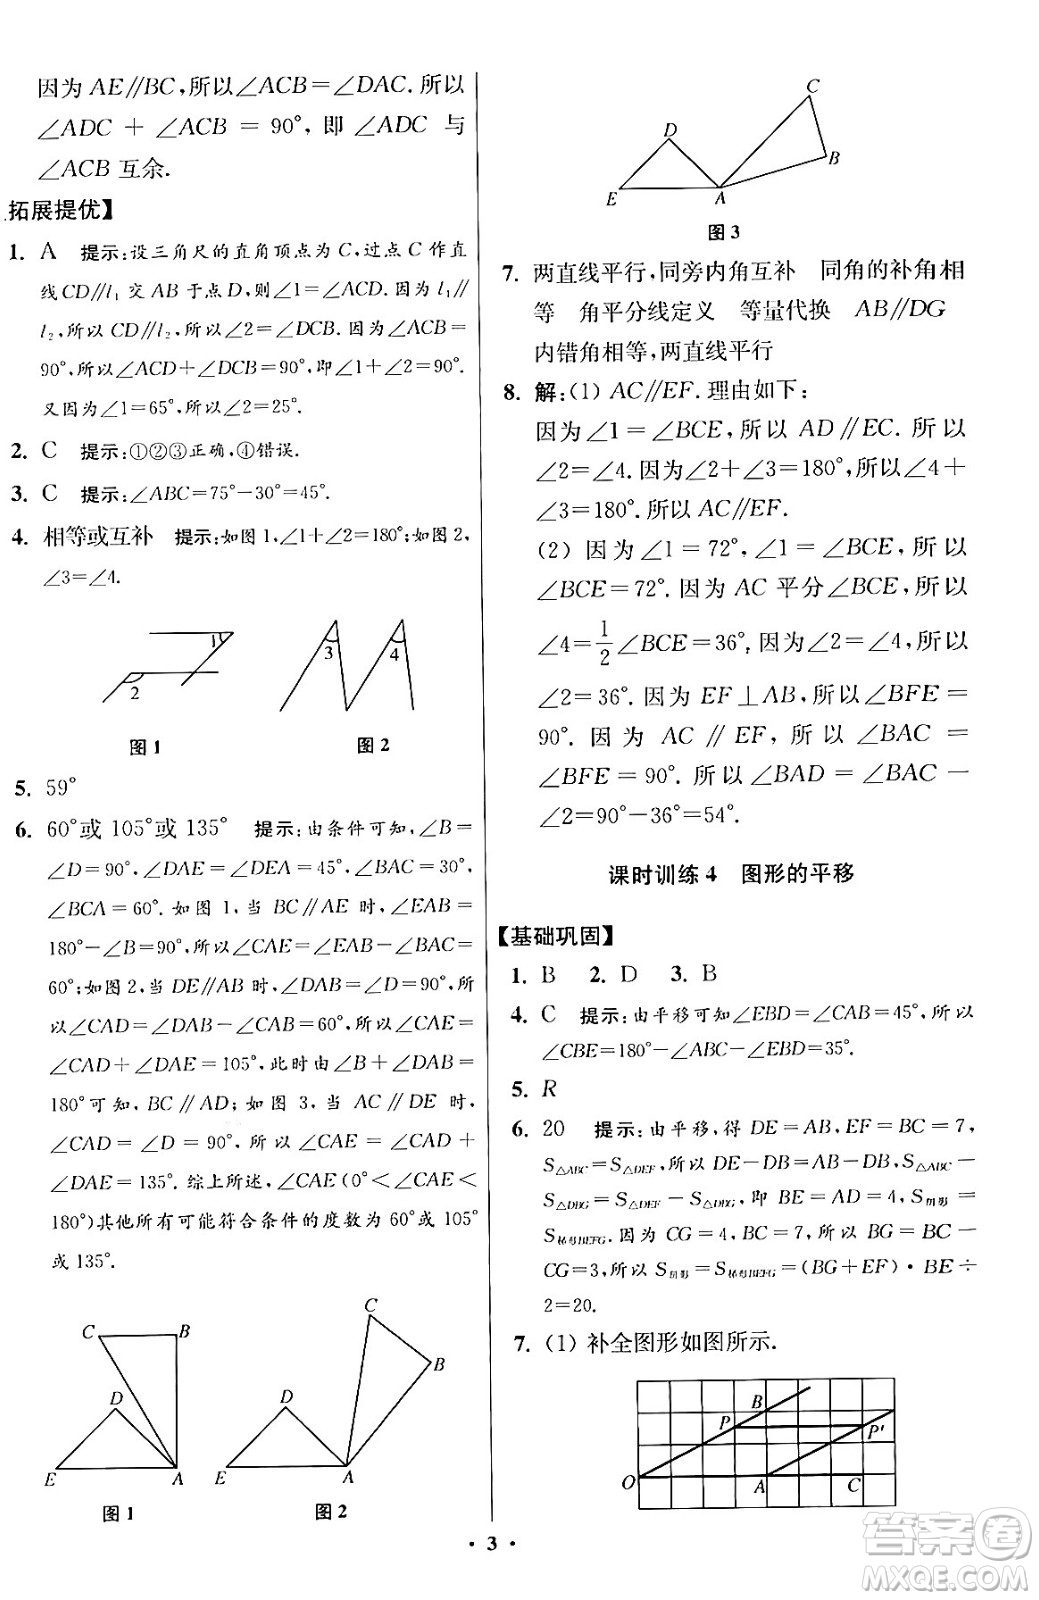 因为 AE∥BC,所以∠ACB=∠DAC.所以
∠ADC + ∠ACB = 90°, 即 ∠ADC 与
∠ACB 互余.
拓展提优】
1. A 提示:设三角尺的直角顶点为 C,过点 C 作直
线 CD∥l₁ 交 AB 于点 D,则∠1=∠ADC.因为 l₁∥
l₂,所以 CD∥l₂,所以∠2=∠DCB.因为∠ACB=
90°,所以∠ACD+∠DCB=90°,即∠1+∠2=90°.
又因为∠1=65°,所以∠2=25°.
2. C 提示:①②③正确,④错误.
3. C 提示:∠ABC=75°-30°=45°.
4. 相等或互补 提示:如图 1,∠1+∠2=180°;如图 2,
∠3=∠4.
1
2
3 4
图 1 图 2
5. 59°
6. 60°或 105°或 135° 提示:由条件可知,∠B=
∠D=90°,∠DAE=∠DEA=45°,∠BAC=30°,
∠BCA=60°.如图 1,当 BC∥AE 时,∠EAB=
180°-∠B=90°,所以∠CAE=∠EAB-∠BAC=
60°;如图 2,当 DE∥AB 时,∠DAB=∠D=90°,所
以∠CAD=∠DAB-∠CAB=60°,所以∠CAE=
∠CAD+∠DAE=105°,此时由∠B+∠DAB=
180°可知,BC∥AD;如图 3,当 AC∥DE 时,
∠CAD = ∠D = 90°, 所以 ∠CAE = ∠CAD +
∠DAE=135°.综上所述,∠CAE(0°<∠CAE<
180°)其他所有可能符合条件的度数为 60°或 105°
或 135°.
C B
D
E A
图 1
C
B
D
E A
图 2
C
D
B
E A
图 3
7. 两直线平行,同旁内角互补 同角的补角相
等 角平分线定义 等量代换 AB∥DG
内错角相等,两直线平行
8. 解:(1) AC∥EF.理由如下:
因为∠1=∠BCE,所以 AD∥EC.所以
∠2=∠4.因为∠2+∠3=180°,所以∠4+
∠3=180°.所以 AC∥EF.
(2) 因为∠1=72°,∠1=∠BCE,所以
∠BCE=72°.因为 AC 平分∠BCE,所以
∠4=1/2∠BCE=36°,因为∠2=∠4,所以
∠2=36°.因为 EF⊥AB,所以∠BFE=
90°.因为 AC∥EF,所以∠BAC=
∠BFE=90°.所以∠BAD=∠BAC-
∠2=90°-36°=54°.
课时训练 4 图形的平移
【基础巩固】
1. B 2. D 3. B
4. C 提示:由平移可知∠EBD=∠CAB=45°,所以
∠CBE=180°-∠ABC-∠EBD=35°.
5. R
6. 20 提示:由平移,得 DE=AB,EF=BC=7,
S△ABC=S△DEF,所以 DE-DB=AB-DB,S△ABC-
S△DBG=S△DEF-S△DBG,即 BE=AD=4,S阴影=
S梯形BEFG.因为 CG=3,BC=7,所以 BG=BC-
CG=3,所以 S阴影=S梯形BEFG=(BG+EF)·BE÷
2=20.
7. (1) 补全图形如图所示.
B
P P′
O A C
· 3 ·
答案卷
MXQE.COM